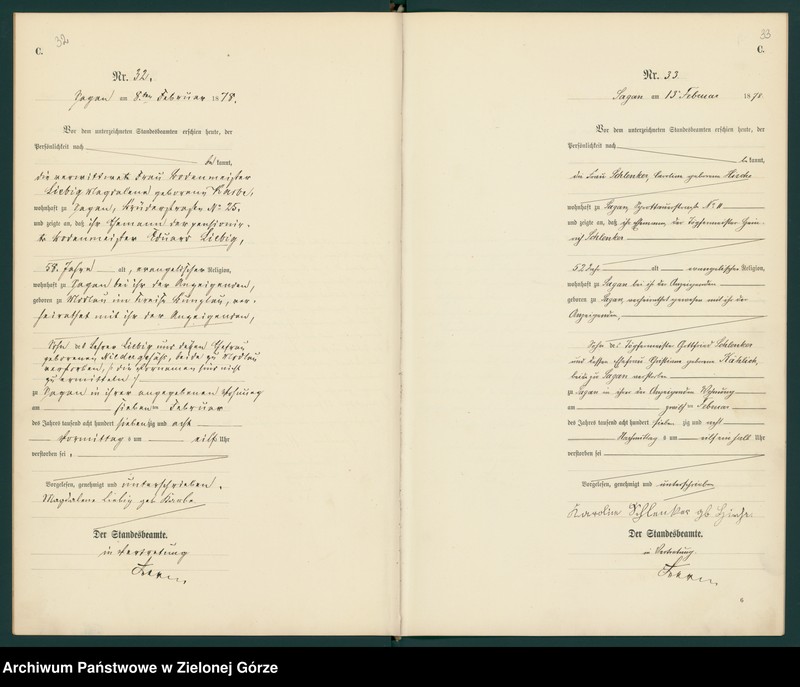 32
C.
Nr. 32.
Sagan am 8ten Februar 1878.
Vor dem unterzeichneten Standesbeamten erschien heute, der
Persönlichkeit nach
bekannt,
die verwittwete Frau Bodenmeister
Liebig Magdalena geborene Knabe,
wohnhaft zu Sagan, No 25.
und zeigte an, daß ihr Ehemann der pensionir-
te Bodenmeister Eduard Liebig,
58. Jahre alt, evangelischer Religion,
wohnhaft zu Sagan bei ihr der Anzeigenden,
geboren zu im Kreise Bunzlau, ver-
heirathet mit ihr der Anzeigenden,
Sohn des Lehrer Liebig und dessen Ehefrau
geborenen beide zu
verstorben, die Vornamen sind nicht
zu ermitteln
zu Sagan in ihrer angegebenen Wohnung
am sieben ten Februar
des Jahres tausend acht hundert sieben zig und acht
Vormittag s um eilf Uhr
verstorben sei.
Vorgelesen, genehmigt und unterschrieben.
Magdalena Liebig geb. Knabe
Der Standesbeamte.
in Vertretung
33
C.
Nr. 33
Sagan am 13 Februar 1878
Vor dem unterzeichneten Standesbeamten erschien heute, der
Persönlichkeit nach
bekannt,
die Frau Schlenker, Karoline geborene Hirche
wohnhaft zu Sagan, No
und zeigte an, daß ihr Ehemann, der Töpfermeister Hein-
rich Schlenker
52 Jahr alt evangelischer Religion,
wohnhaft zu Sagan bei ihr der Anzeigenden
geboren zu Sagan, verheirathet gewesen mit ihr der
Anzeigenden,
Sohn des Töpfermeister Gottfried Schlenker
und dessen Ehefrau Christiane geborene
beide zu Sagan verstorben
zu Sagan in ihrer der Anzeigenden Wohnung
am zwölf ten Februar
des Jahres tausend acht hundert sieben zig und acht
Nachmittag s um eilf ein halb Uhr
verstorben sei
Vorgelesen, genehmigt und unterschrieben
Karoline Schlenker gb Hirche
Der Standesbeamte.
in Vertretung
6
Archiwum Państwowe w Zielonej Górze